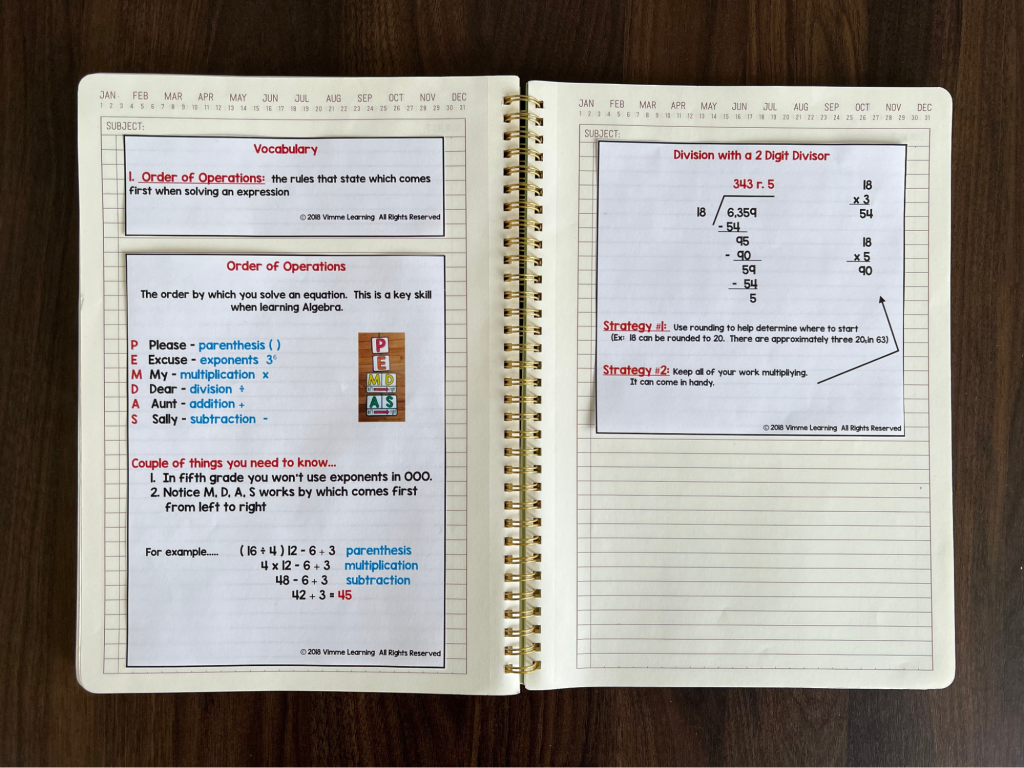 JAN FEB MAR APR MAY JUN JUL AUG SEP OCT NOV DEC
1 2 3 4 5 6 7 8 9 10 11 12 13 14 15 16 17 18 19 20 21 22 23 24 25 26 27 28 29 30 31
SUBJECT:
Vocabulary
1. Order of Operations: the rules that state which comes
first when solving an expression
© 2018 Vimme Learning All Rights Reserved
Order of Operations
The order by which you solve an equation. This is a key skill
when learning Algebra.
P Please - parenthesis ( )
E Excuse - exponents 3⁶
M My - multiplication x
D Dear - division ÷
A Aunt - addition +
S Sally - subtraction -
P
E
M D
A S
Couple of things you need to know...
1. In fifth grade you won't use exponents in OOO.
2. Notice M, D, A, S works by which comes first
from left to right
For example..... ( 16 ÷ 4 ) 12 - 6 + 3 parenthesis
4 x 12 - 6 + 3 multiplication
48 - 6 + 3 subtraction
42 + 3 = 45
© 2018 Vimme Learning All Rights Reserved
JAN FEB MAR APR MAY JUN JUL AUG SEP OCT NOV DEC
1 2 3 4 5 6 7 8 9 10 11 12 13 14 15 16 17 18 19 20 21 22 23 24 25 26 27 28 29 30 31
SUBJECT:
Division with a 2 Digit Divisor
343 r. 5
18 6,359
- 54
95
- 90
59
- 54
5
18
x 3
54
18
x 5
90
Strategy #1: Use rounding to help determine where to start
(Ex: 18 can be rounded to 20. There are approximately three 20s in 63)
Strategy #2: Keep all of your work multipliying.
It can come in handy.
© 2018 Vimme Learning All Rights Reserved